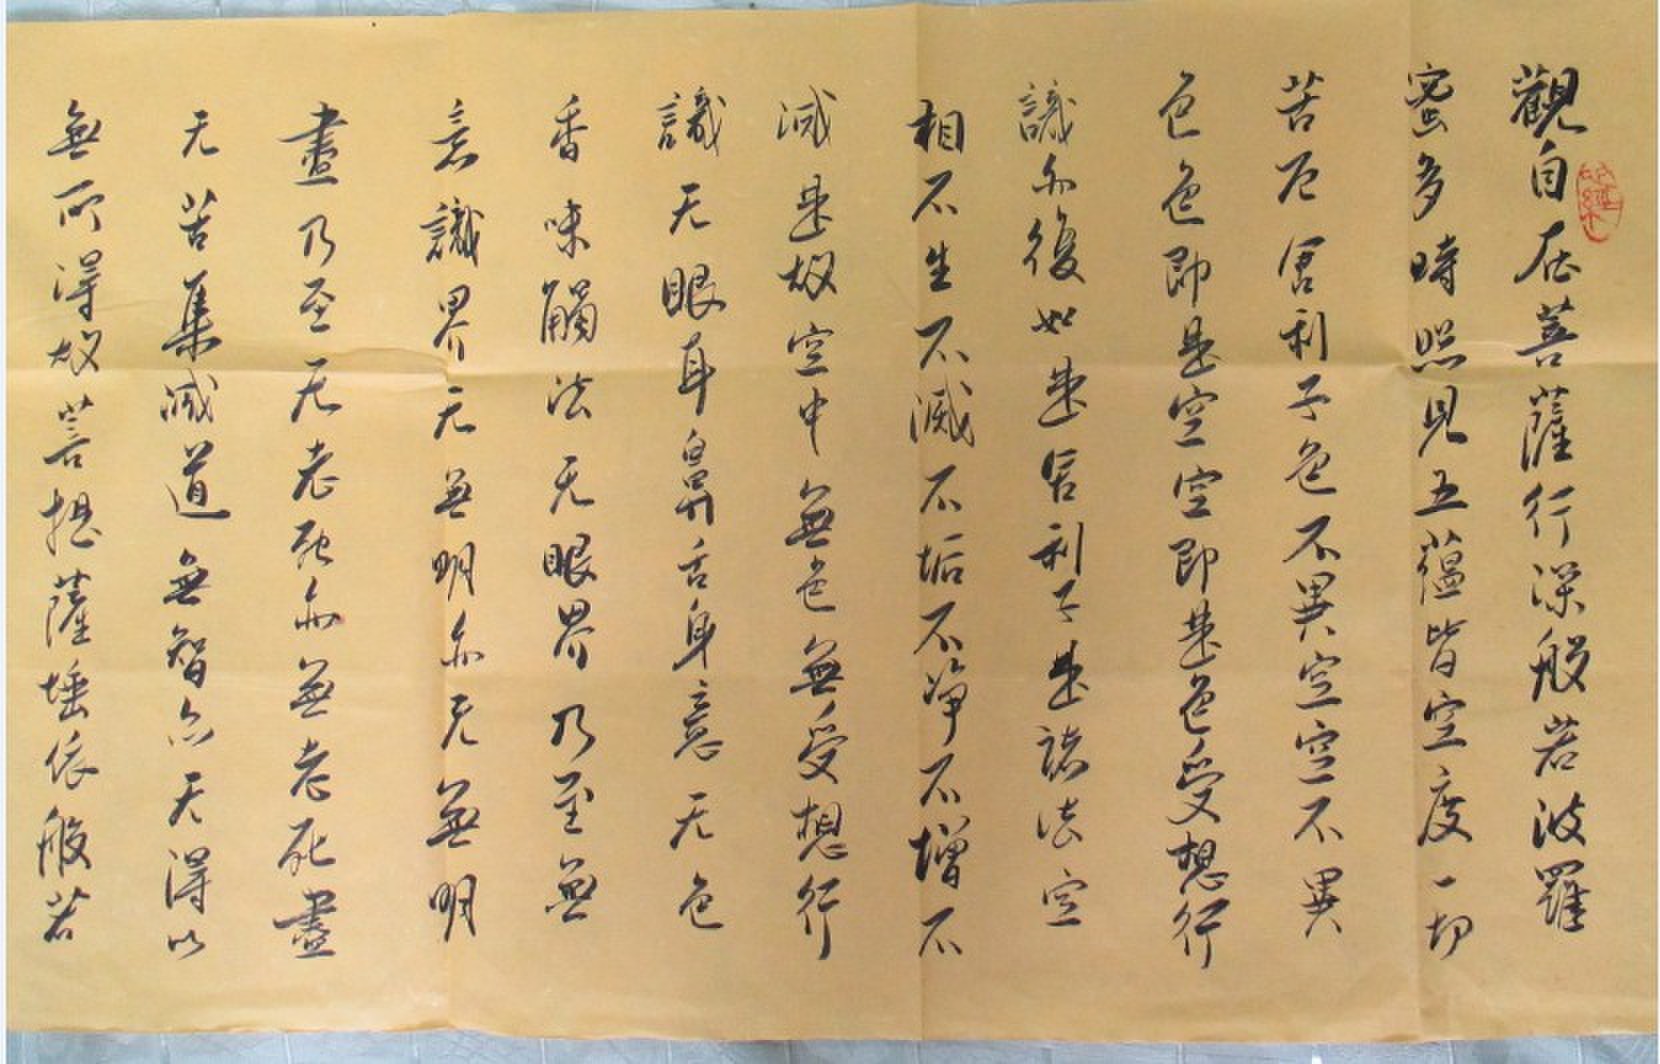 觀自在菩薩行深般若波羅
蜜多時照見五蘊皆空度一切
苦厄舍利子色不異空空不異
色色即是空空即是色受想行
識亦復如是舍利子是諸法空
相不生不滅不垢不淨不增不
減是故空中無色無受想行
識无眼耳鼻舌身意无色
香味觸法无眼界乃至無
意識界无無明亦无無明
盡乃至无老死亦無老死盡
无苦集滅道無智亦无得以
無所得故菩提薩埵依般若